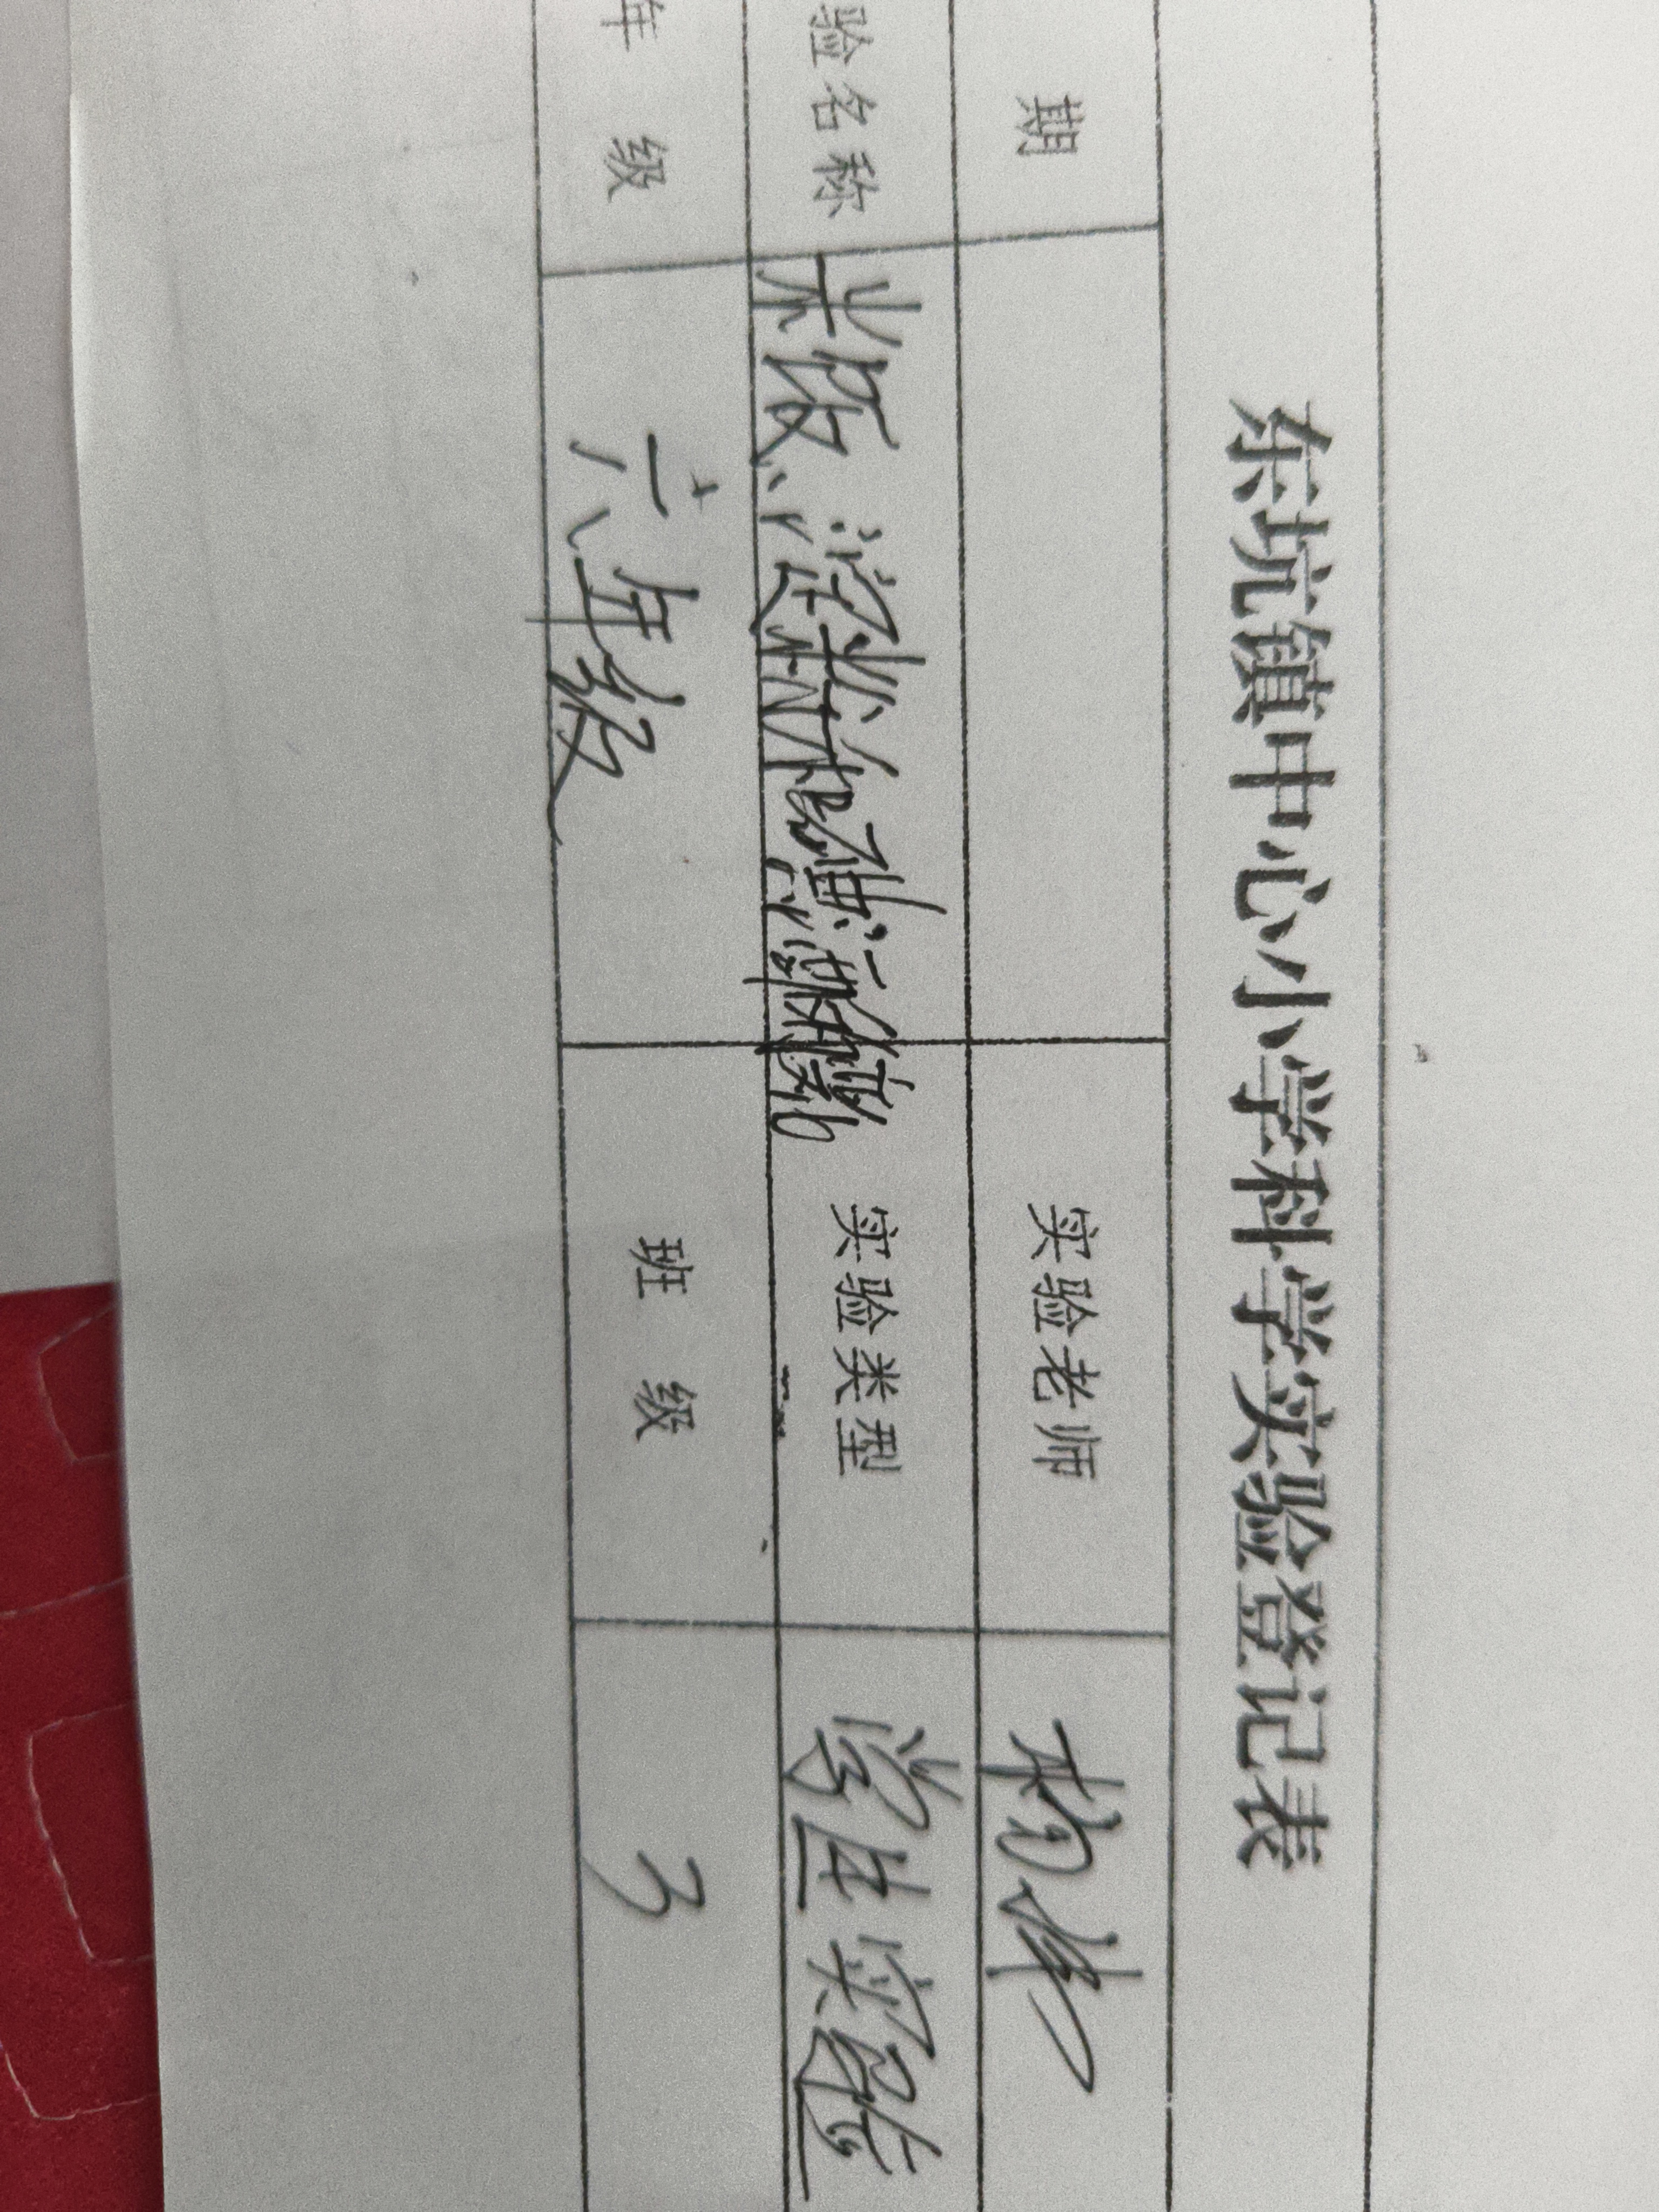 东坑镇中心小学科学实验登记表
期 实验老师 杨
验名称 米饭、淀粉和碘酒的 实验类型 学生实验
年级 六年级 班级 3